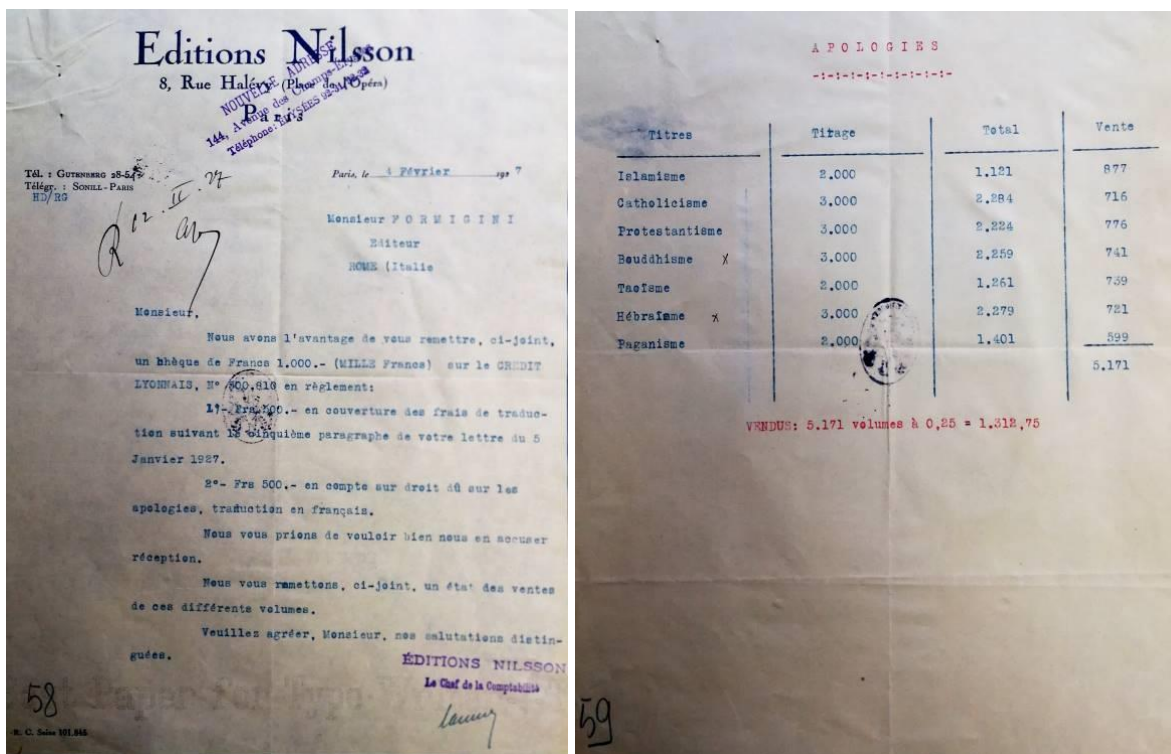 Editions Nilsson
8, Rue Halévy (Place de l'Opéra)
Paris
NOUVELLE ADRESSE
144, Avenue des Champs-Elysées
Téléphone: ELYSÉES
Tél. : GUTENBERG 28-54
Télégr. : SONILL-PARIS
HD/RG
Paris, le 4 Février 1927
R 12. II. 27
Monsieur FORMIGINI
Editeur
ROME (Italie
Monsieur,
Nous avons l'avantage de vous remettre, ci-joint,
un bhèque de Francs 1.000.- (MILLE Francs) sur le CREDIT
LYONNAIS, N° 600.810 en règlement:
1°- Frs 500.- en couverture des frais de traduc-
tion suivant le cinquième paragraphe de votre lettre du 5
Janvier 1927.
2°- Frs 500.- en compte sur droit dû sur les
apologies, traduction en français.
Nous vous prions de vouloir bien nous en accuser
réception.
Nous vous remettons, ci-joint, un état des ventes
de ces différents volumes.
Veuillez agréer, Monsieur, nos salutations distin-
guées.
ÉDITIONS NILSSON
Le Chef de la Comptabilité
58
R. C. Seine 101.845
APOLOGIES
-:-:-:-:-:-:-:-:-:-
Titres Titage Total Vente
Islamisme 2.000 1.121 877
Catholicisme 3.000 2.284 716
Protestantisme 3.000 2.224 776
Bouddhisme x 3.000 2.259 741
Taoïsme 2.000 1.261 739
Hébraïsme x 3.000 2.279 721
Paganisme 2.000 1.401 599
5.171
VENDUS: 5.171 volumes à 0,25 = 1.312,75
59